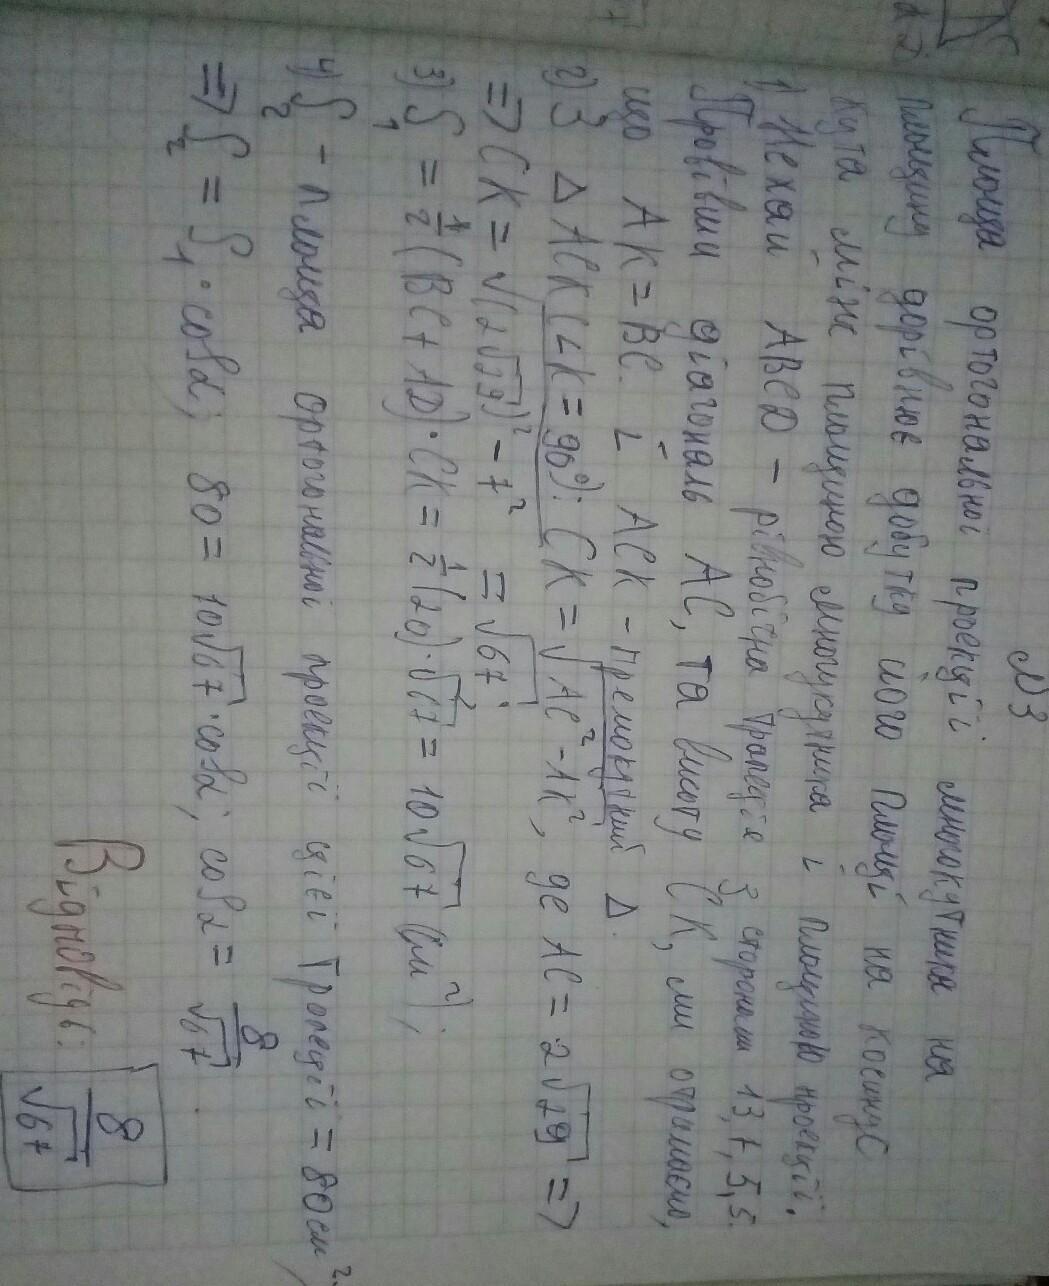 N3
Площа ортогональної проекції многокутника на
площину дорівнює добутку його площі на косинус
кута між площиною многокутника і площиною проекції.
1) Нехай ABCD - рівнобічна трапеція з сторонами 13, 7, 5, 5.
Провівши діагональ AC, та висоту CK, ми отримаємо,
що AK = BC. і ACK - прямокутний Δ.
2) З Δ ACK (∠K = 90°): CK = √AC² - AK², де AC = 2√29 =>
=> CK = √(2√29)² - 7² = √67;
3) S₁ = 1/2 (BC + AD) · CK = 1/2 (20) · √67 = 10√67 (см²);
4) S₂ - площа ортогональної проекції цієї трапеції = 80 см².
=> S₂ = S₁ · cosα; 80 = 10√67 · cosα; cosα = 8/√67.
Відповідь: 8/√67